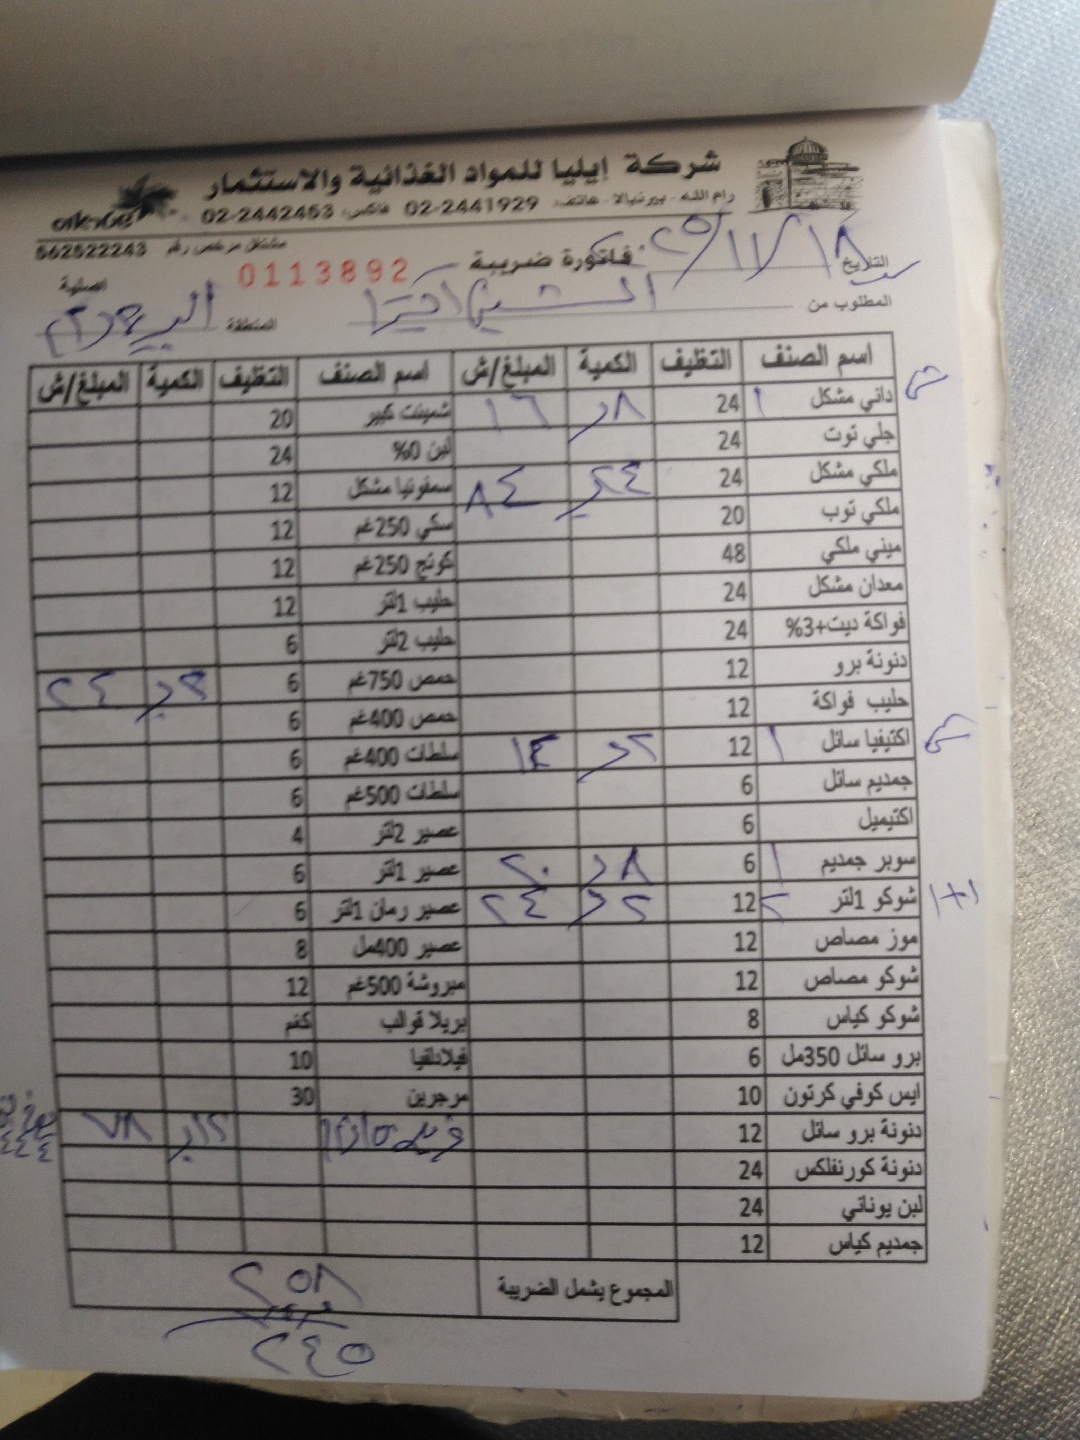 شركة إيليا للمواد الغذائية والاستثمار
رام الله - بيرنبالا - هاتف: 02-2441929 فاكس: 02-2442453
مشتغل مرخص رقم 562522243
فاتورة ضريبية 0113892
التاريخ ١٨/١١/٢٩
أصلية
المطلوب من
المنطقة
اسم الصنف التغليف الكمية المبلغ/ش اسم الصنف التغليف الكمية المبلغ/ش
داني مشكل ١ 24 ٨ ١٦ شمينت كبير 20
جلي توت 24 لبن 0% 24
ملكي مشكل 24 ٢٤ ٨٤ سمفونيا مشكل 12
ملكي توب 20 سكي 250غم 12
ميني ملكي 48 كوتج 250غم 12
معدان مشكل 24 حليب 1لتر 12
فواكة ديت+3% 24 حليب 2لتر 6
دنونة برو 12 حمص 750غم 6 ٢٤
حليب فواكة 12 حمص 400غم 6
اكتيفيا سائل ١ 12 ٢ ١٤ سلطات 400غم 6
جمديم سائل 6 سلطات 500غم 6
اكتيميل 6 عصير 2لتر 4
سوبر جمديم ١ 6 ٨ ٢٠ عصير 1لتر 6
شوكو 1لتر ٢ 12 ٢ ٢٤ عصير رمان 1لتر 6
١+١
موز مصاص 12 عصير 400مل 8
شوكو مصاص 12 مبروشة 500غم 12
شوكو كياس 8 بريلا قوالب كغم
برو سائل 350مل 6 فيلادلفيا 10
ايس كوفي كرتون 10 مرجرين 30
دنونة برو سائل 12 ١٢ ٧٨
دنونة كورنفلكس 24
لبن يوناني 24
جمديم كياس 12
المجموع يشمل الضريبة ٢٥٨
٢٤٥